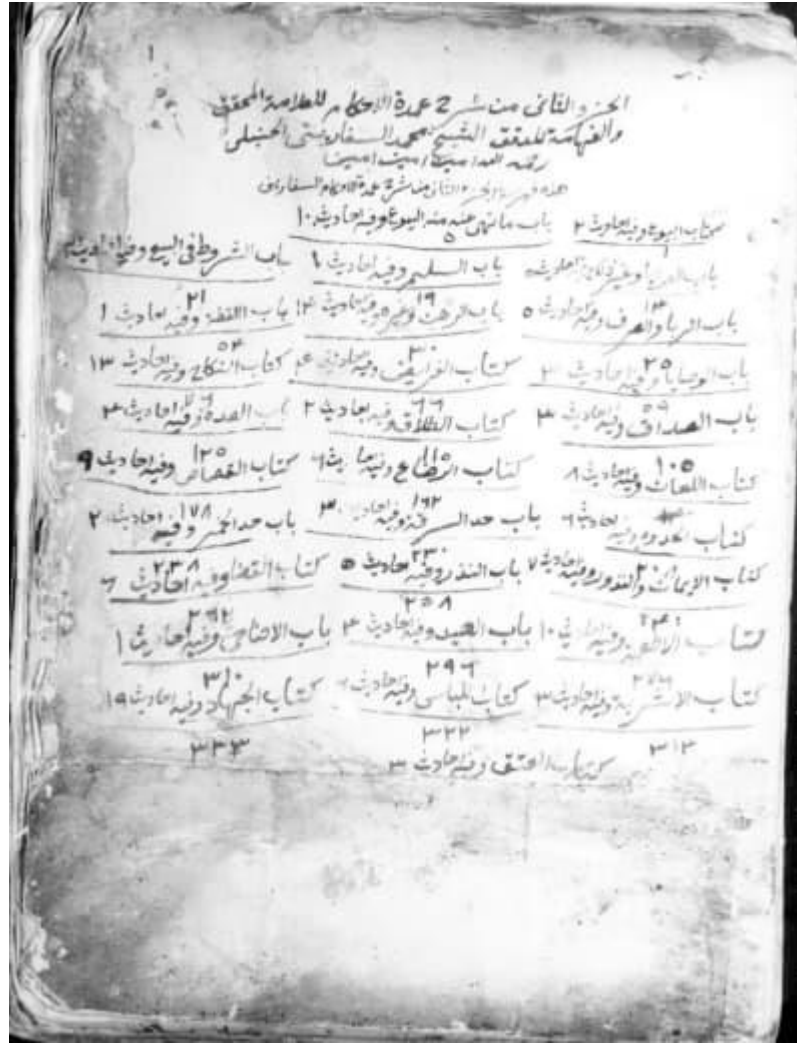 الجزء الثاني من شرح عمدة الاحكام للعلامة المحقق
والفهامة المدقق الشيخ محمد السفاريني الحنبلي
رحمه الله امين امين امين
هذه فهرسة الجزء الثاني من شرح عمدة الاحكام للسفاريني
كتاب البيوع وفيه احاديث ٢ باب ما نهى عنه من البيوع وفيه احاديث ١٠
باب العرايا وغير ذلك وفيه احاديث باب السلم وفيه احاديث ١ باب الشروط في البيع وفيه احاديث
٥
باب الربا والصرف وفيه احاديث ٥ باب الرهن وغيره وفيه احاديث ١٢ باب اللقطة وفيه احاديث ١
١٣ ١٩ ٢١
باب الوصايا وفيه احاديث ٣ كتاب الفرايض وفيه احاديث ٤ كتاب النكاح وفيه احاديث ١٣
٢٥ ٣٠ ٥٣
باب الصداق وفيه احاديث ٣ كتاب الطلاق وفيه احاديث ٢ باب العدة وفيه احاديث ٣
٥٩ ٦٦ ٧٦
كتاب اللعان وفيه احاديث ٨ كتاب الرضاع وفيه احاديث ٦ كتاب القصاص وفيه احاديث ٩
١٠٥ ١١٥ ١٢٥
كتاب الحدود وفيه احاديث ٦ باب حد السرقة وفيه احاديث ٣ باب حد الخمر وفيه احاديث ٢
١٦٢ ١٧٨
كتاب الايمان والنذور وفيه احاديث ٧ باب النذر وفيه احاديث ٥ كتاب القضا وفيه احاديث ٦
٢٠٨ ٢٣٠ ٢٣٨
كتاب الاطعمة وفيه احاديث ١٠ باب الصيد وفيه احاديث ٣ باب الاضاحي وفيه احاديث ١
٢٥٨ ٢٦٢
كتاب الاشربة وفيه احاديث ٣ كتاب اللباس وفيه احاديث ٦ كتاب الجهاد وفيه احاديث ١٩
٢٧٦ ٢٩٦ ٣١٠
٣١٢ ٣٢٢ ٣٣٣
كتاب العتق وفيه احاديث ٣